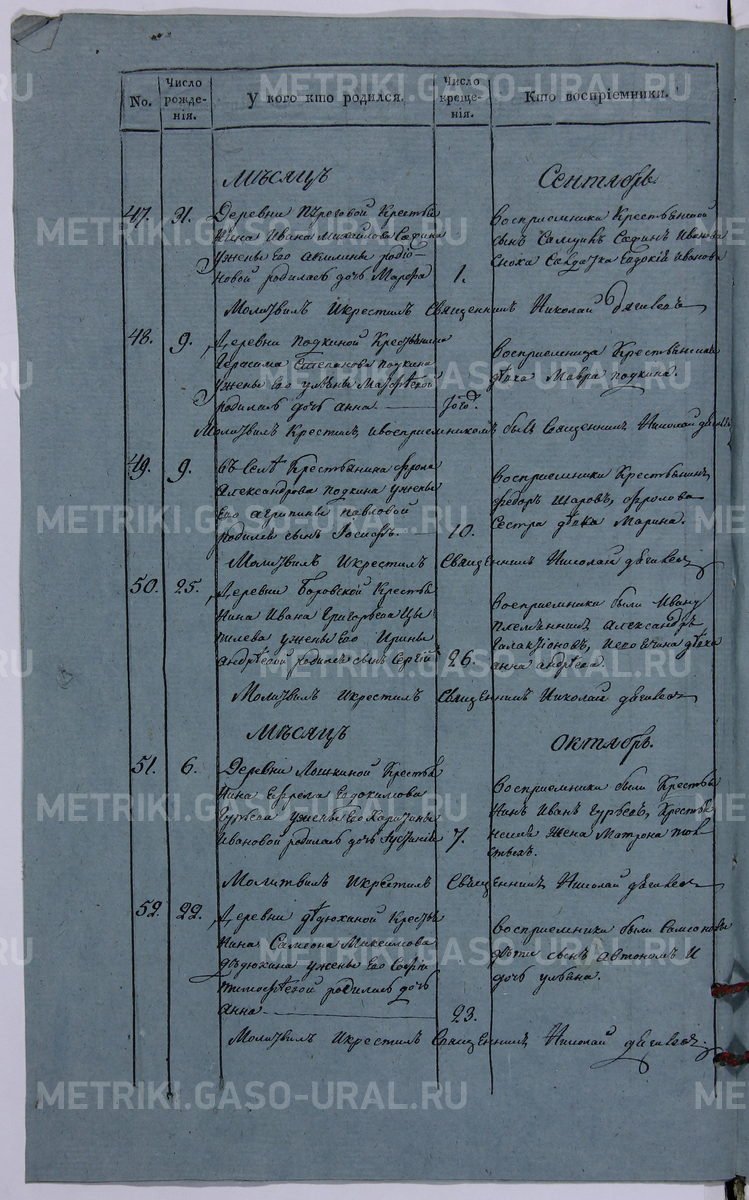 No.
Число рожде-нія.
У кого кто родился.
Число креще-нія.
Кто воспріемники.
Мѣсяцъ Сентябрь.
47. 31. Деревни Крестья
нина Ивана Михайлова
У жены его родіо-
новой родилась дочь 1.
Воспріемники Крестьянской
сынъ Иванова
Евдокія Иванова
Молитвилъ И крестилъ Священникъ Николай
48. 9. Деревни Подкиной Крестьянина
Герасима Степанова Подкина
У жены его
родилась дочь анна
Воспріемница Крестьянская
дѣвка Мавра подкина.
Молитвилъ Крестилъ, и воспріемникомъ былъ Священникъ Николай
49. 9. Въ Селѣ Крестьянина Фрола
Александрова подкина у жены
его агрипины павловой
родился сынъ Іосифъ. 10.
Воспріемники Крестьянинъ
федоръ Шаровъ, фролова
Сестра дѣвка Марина.
Молитвилъ И крестилъ Священникъ Николай
50. 25. Деревни Боровской Крестья
нина Ивана Григорьева
у жены его Ирины
андрѣевой родился сынъ Сергій 26.
Воспріемники были Ивану
племянникъ александръ
Галактіоновъ, дѣвка
анна андрѣева.
Молитвилъ И крестилъ Священникъ Николай
Мѣсяцъ Октябрь.
51. 6. Деревни Крестья
нина Евдокимова
Гурьева у жены его Харитины
Ивановой родилась дочь 7.
Воспріемники были Крестья
нинъ Иванъ Гурьевъ, Крестья
жена Матрона
Молитвилъ И крестилъ Священникъ Николай
52. 22. Деревни дѣдюхиной Крестья
нина Самсона Максимова
дѣдюхина у жены его Софіи
тимофѣевой родилась дочь
анна 23.
Воспріемники были Самсоновы
дѣти сынъ автономъ И
дочь ульяна.
Молитвилъ И крестилъ Священникъ Николай
METRIKI.GASO-URAL.RU